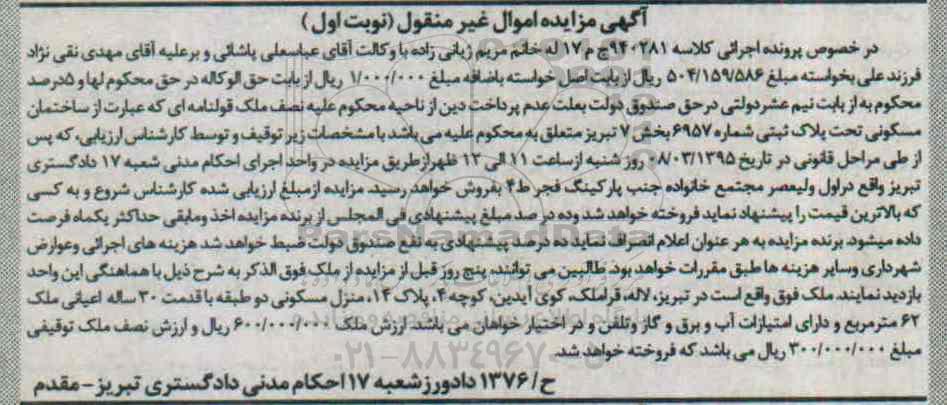 آگهی مزایده اموال غیر منقول (نوبت اول)
در خصوص پرونده اجرائی کلاسه ۹۴۰۲۸۱ج م ۱۷ له خانم مریم ژیانی زاده با وکالت آقای عباسعلی پاشائی و برعلیه آقای مهدی نقی نژاد
فرزند علی بخواسته مبلغ ۵۰۴/۱۵۹/۵۸۶ ریال از بابت اصل خواسته باضافه مبلغ ۱/۰۰۰/۰۰۰ ریال از بابت حق الوکاله در حق محکوم لها و ۵درصد
محکوم به از بابت نیم عشر دولتی در حق صندوق دولت بعلت عدم پرداخت دین از ناحیه محکوم علیه نصف ملک قولنامه ای که عبارت از ساختمان
مسکونی تحت پلاک ثبتی شماره ۶۹۵۷ بخش ۷ تبریز متعلق به محکوم علیه می باشد با مشخصات زیر توقیف و توسط کارشناس ارزیابی، که پس
از طی مراحل قانونی در تاریخ ۰۸/۰۳/۱۳۹۵ روز شنبه از ساعت ۱۱ الی ۱۲ ظهر از طریق مزایده در واحد اجرای احکام مدنی شعبه ۱۷ دادگستری
تبریز واقع در اول ولیعصر مجتمع خانواده جنب پارکینگ فجر ط۴ بفروش خواهد رسید. مزایده از مبلغ ارزیابی شده کارشناس شروع و به کسی
که بالاترین قیمت را پیشنهاد نماید فروخته خواهد شد و ده در صد مبلغ پیشنهادی فی المجلس از برنده مزایده اخذ و مابقی حداکثر یکماه فرصت
داده میشود. برنده مزایده به هر عنوان اعلام انصراف نماید ده درصد پیشنهادی به نفع صندوق دولت ضبط خواهد شد هزینه های اجرائی و عوارض
شهرداری وسایر هزینه ها طبق مقررات خواهد بود. طالبین می توانند، پنج روز قبل از مزایده از ملک فوق الذکر به شرح ذیل با هماهنگی این واحد
بازدید نمایند. ملک فوق واقع است در تبریز، لاله، قراملک، کوی آیدین، کوچه ۴، پلاک ۱۴، منزل مسکونی دو طبقه با قدمت ۳۰ ساله اعیانی ملک
۶۲ مترمربع و دارای امتیازات آب و برق و گاز وتلفن و در اختیار خواهان می باشد. ارزش ملک ۶۰۰/۰۰۰/۰۰۰ ریال و ارزش نصف ملک توقیفی
مبلغ ۳۰۰/۰۰۰/۰۰۰ ریال می باشد که فروخته خواهد شد.
ح/۱۳۷۶ دادورز شعبه ۱۷ احکام مدنی دادگستری تبریز - مقدم
ParsNamadData
۰۲۱-۸۸۳۴۹۶۷۰